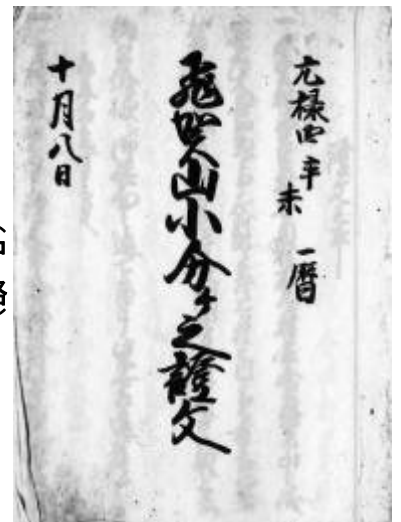 元禄四辛未 一暦
山小分ケ之證文
十月八日